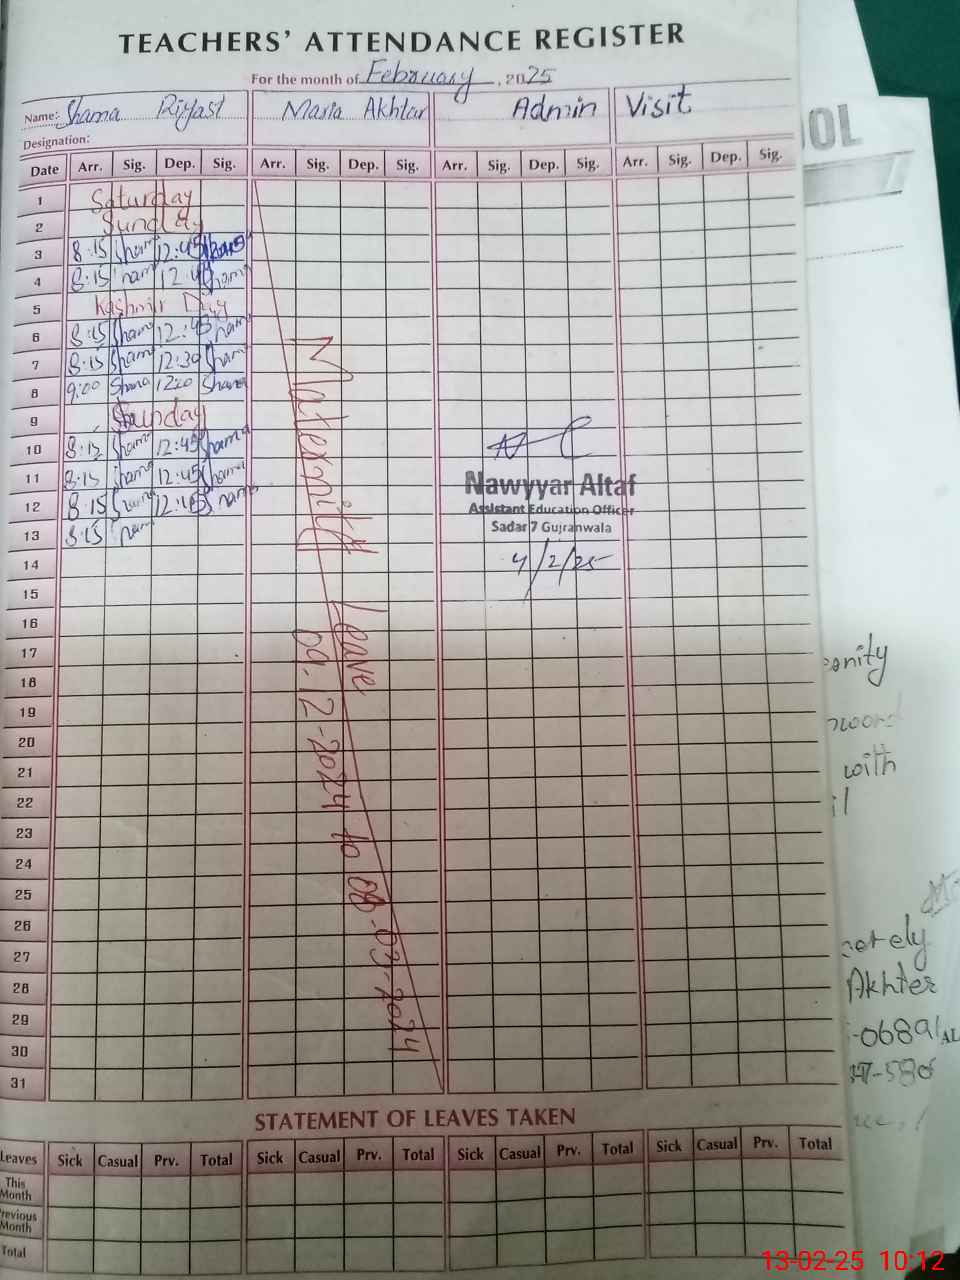 TEACHERS' ATTENDANCE REGISTER
For the month of February, 2025
Name: Shama Riffast Maria Akhtar Admin Visit
Designation:
Date Arr. Sig. Dep. Sig. Arr. Sig. Dep. Sig. Arr. Sig. Dep. Sig. Arr. Sig. Dep. Sig.
1 Saturday
2 Sunday
3 8:15 Sham 12:45
4 8:15 ham Sham
5 Kashmir Day
6 8:15 Sham 12:45 ham
7 8:15 Sham 12:30 Sham
8 9:00 Shama 1200 Shama
9 Sunday
10 8:15 Sham 12:45 Shama
11 8:15 Sham 12:45 Shama
12 8:15 12:45 Shama
13 8:15 ham
14
15
16
17
18
19
20
21
22
23
24
25
26
27
28
29
30
31
Maternity Leave
09.12-2024 to 08-03-2024
Nawyyar Altaf
Assistant Education Officer
Sadar 7 Gujranwala
4/2/25
STATEMENT OF LEAVES TAKEN
Leaves Sick Casual Prv. Total Sick Casual Prv. Total Sick Casual Prv. Total Sick Casual Prv. Total
This Month
Previous Month
Total
OOL
with
Akhter
-0689
AL
-586
13-02-25 10:12